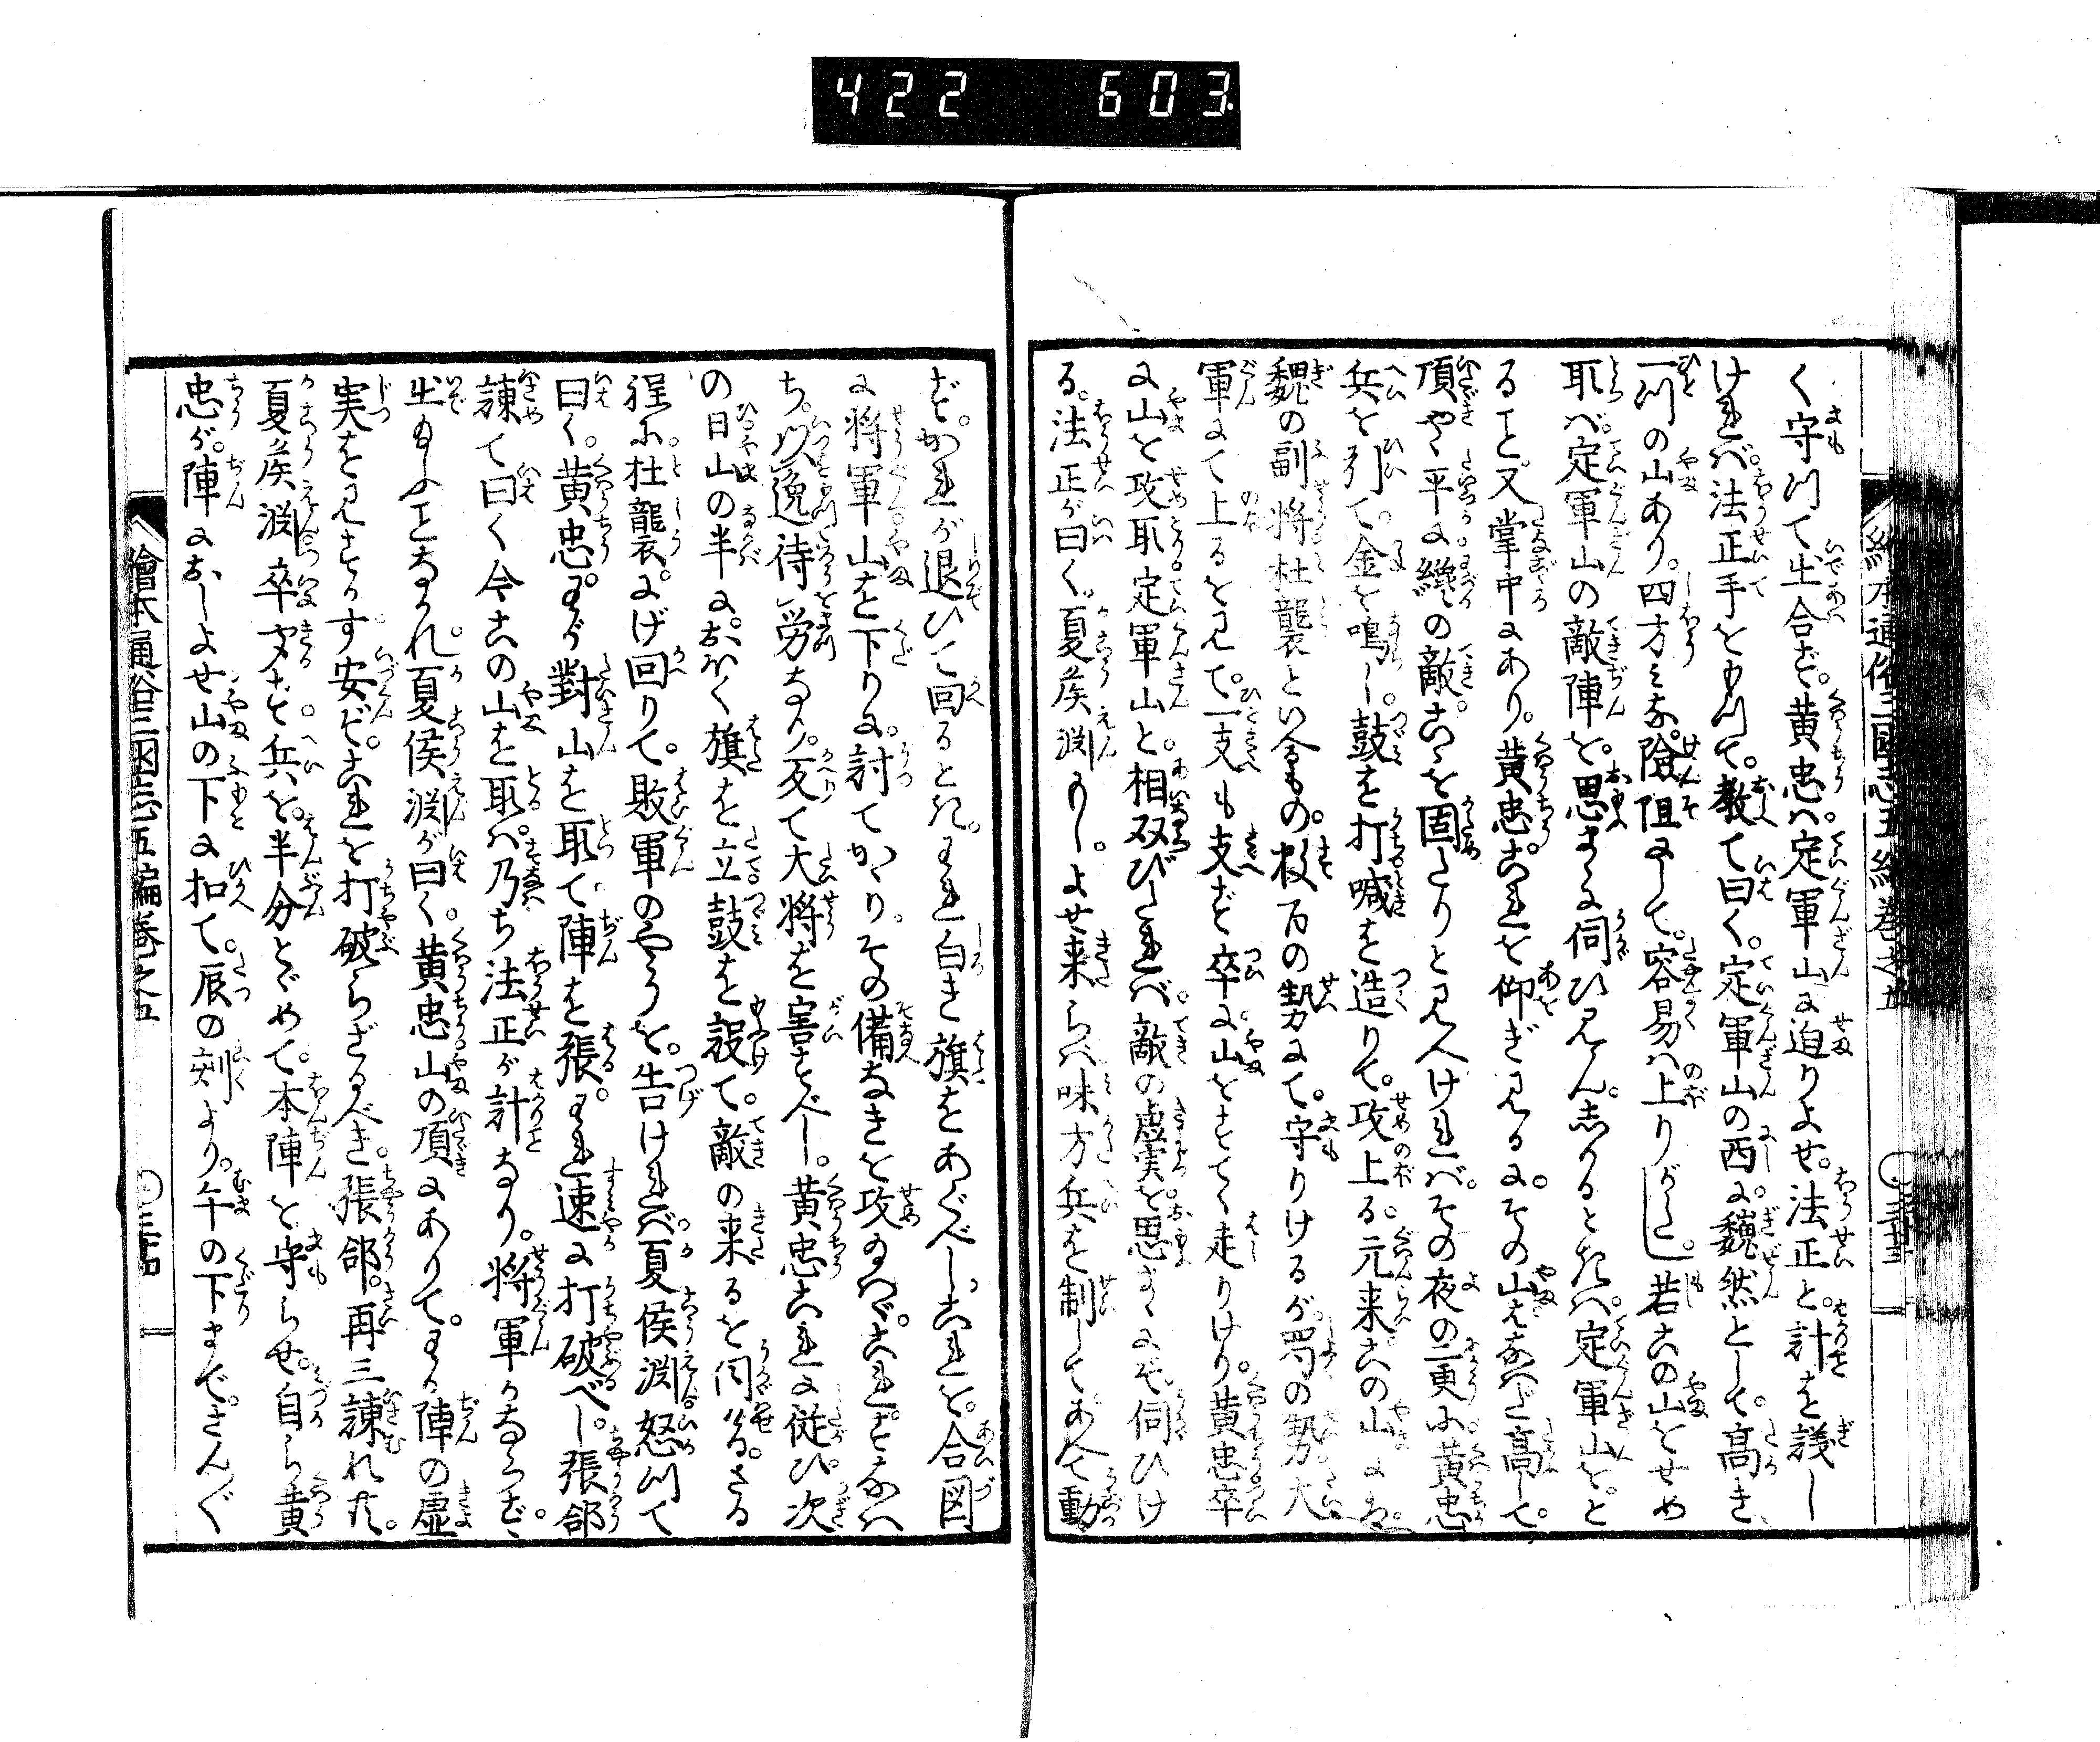 422 603
繪本通俗三國志五編巻之五
く守つて出合ず。黄忠ハ定軍山に迫りよせ。法正と。計を議し
ければ。法正手をもつて。教て曰く。定軍山の西に。巍然として。高き
一つの山あり。四方ミな。險阻にして。容易ハ上りがたし。若この山をせめ
取バ。定軍山の敵陣を。思まゝに伺ひ見ん。しかるときハ。定軍山を。と
ること。又掌中にあり。黄忠。これを仰ぎ見るに。その山はなハだ高して。
頂やゝ平に。纔の敵。こゝを固たりと見へければ。その夜の二更に。黄忠
兵を引て。金を鳴し。鼓を打喊を造りて。攻上る。元来この山にハ。
魏の副将杜襲といふもの。数百の勢にて。守りけるが。蜀の勢大
軍にて上るを見て。一支も支ず。卒に山をすてゝ走りけり。黄忠卒
に山を攻取。定軍山と。相双びたれば。敵の虚実を。思まゝにぞ伺ひけ
る。法正が曰く。夏侯淵もし。よせ来らバ味方兵を制して。あへて動
ず。かれが退ひて回るとき。われ白き旗をあぐべし。これを。合図
に将軍。山を下りに。討てかゝり。その備なきを攻めバ。これすなハ
ち。以逸待労なり。反て大将を害すべし。黄忠これに従ひ。次
の日。山の半に。おほく旗を立。鼓を設て。敵の来るを伺ける。さる
程に杜襲。にげ回りて。敗軍のやうを。告ければ。夏侯淵怒つて
曰く。黄忠。わが對山を取て。陣を張る。われ速に打破べし。張郃
諌て曰く今この山を取ハ。乃ち法正が計なり。将軍かならず。
出給ふことなかれ。夏侯淵が曰く。黄忠山の頂にありて。わが陣の虚
実を見すかす。安ぞ。これを打破らざるべき。張郃。再三諌れ共。
夏侯淵卒に聞ず。兵を。半分とゞめて。本陣を守らせ。自ら黄
忠が。陣におしよせ山の下に扣て。辰の刻より。午の下まで。さんゞ
繪本通俗三国志五編巻之五